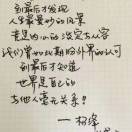 到最后才发现
人生最曼妙的风景
竟是内心的淡定与从容
我们曾如此期盼外界的认可
到最后才知道
世界是自己的
与他人毫无关系!
——杨绛